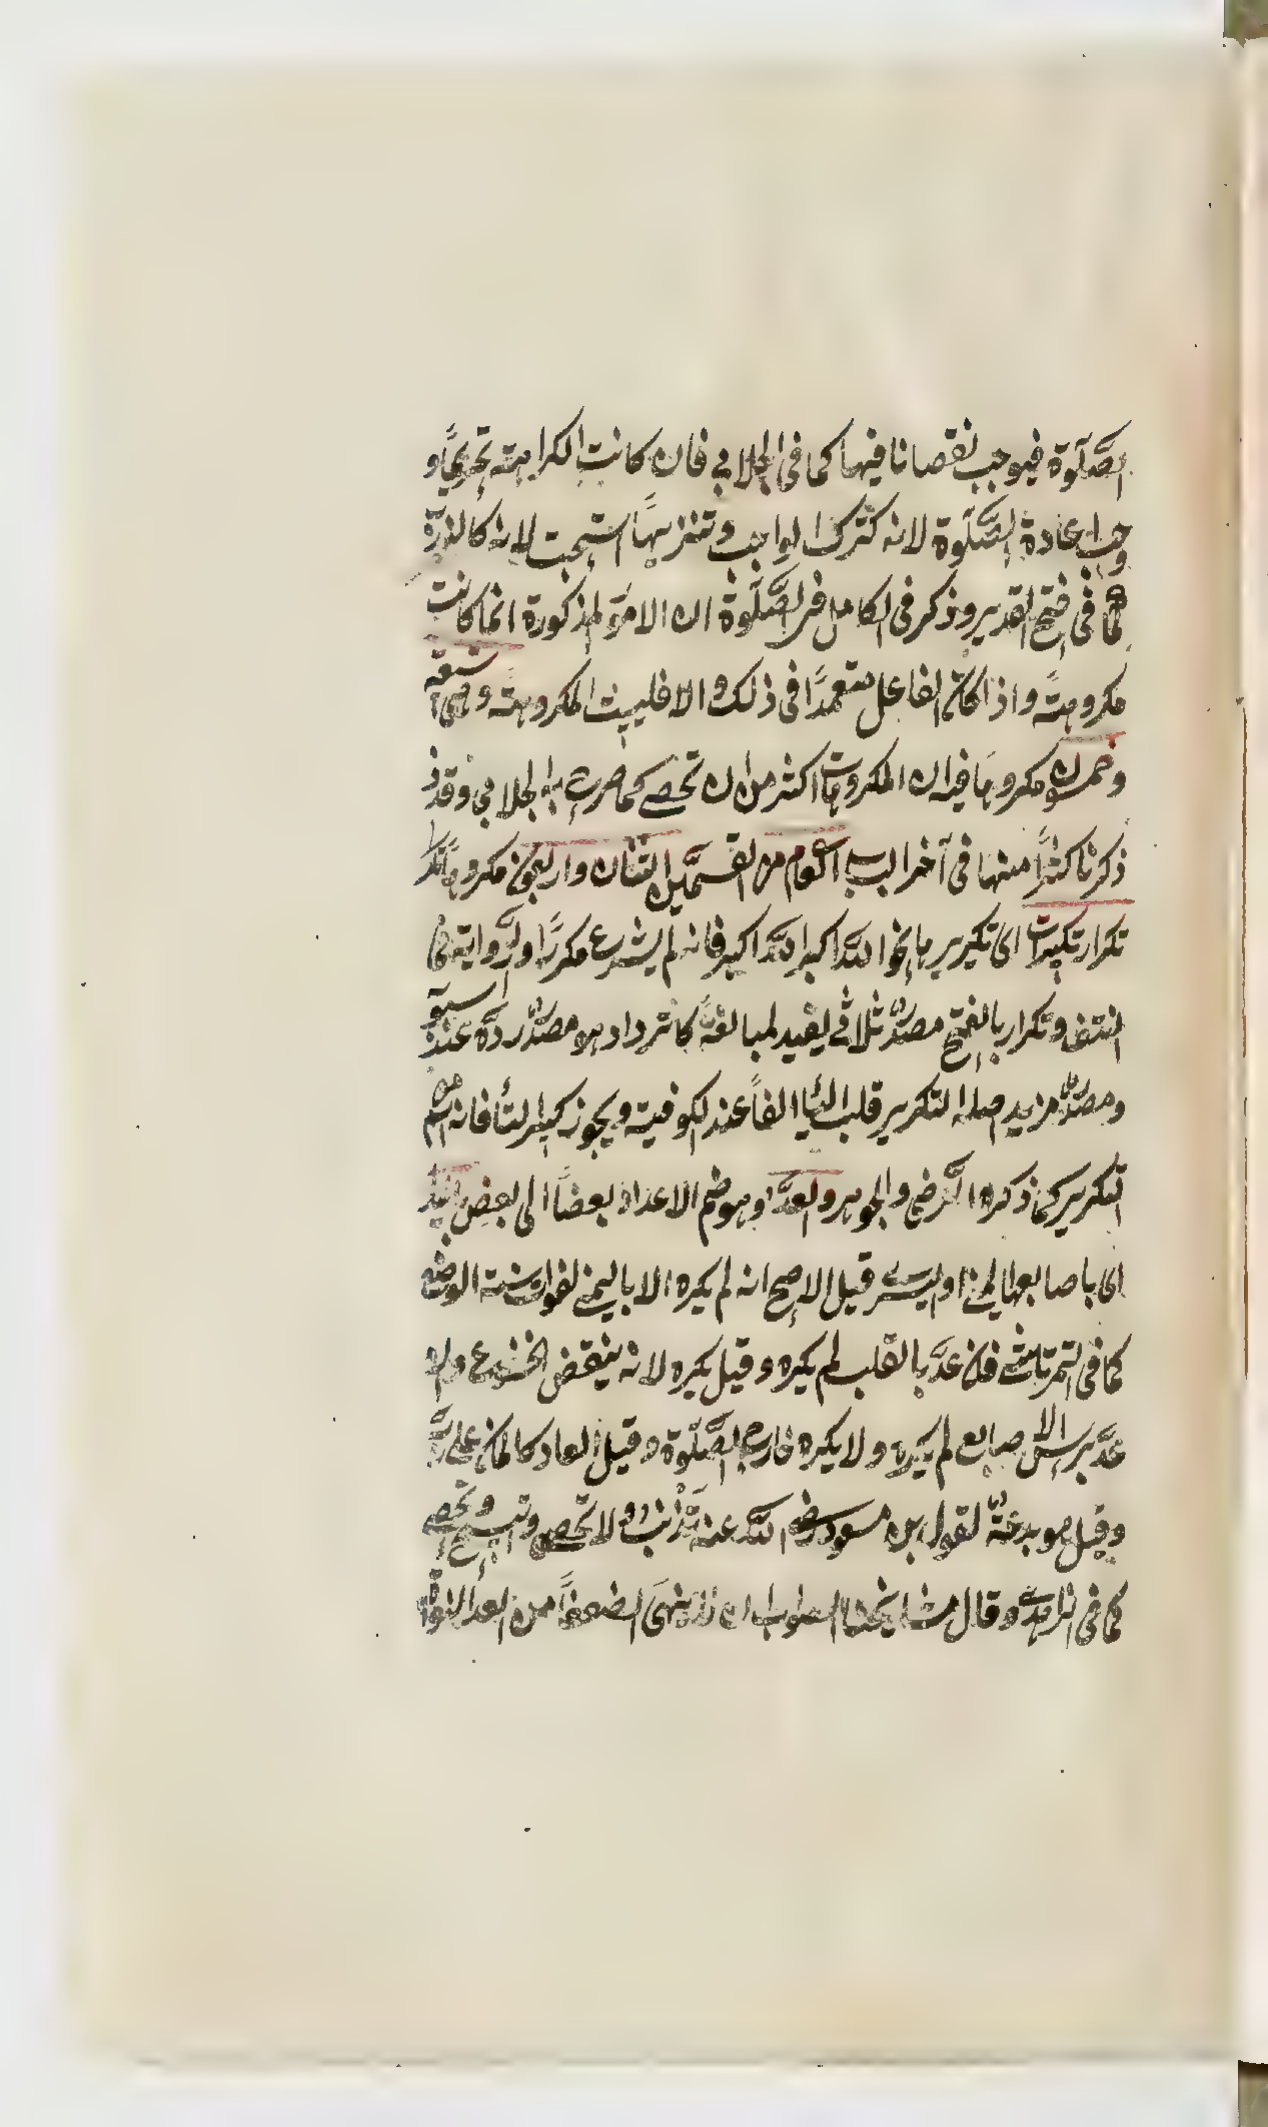 الصَّلٰوة فيوجب نقصانا فيها كما فى الجلابي فان كانت الكراهته تحريمًا و
وجب اعادة الصَّلٰوة لانه كترك الواجب وتنزيهًا استحبت لانه
كما فى فتح القدير وذكر فى الكامل فى الصَّلٰوة ان الامور المذكورة انما كانت
مكروهتةً واذا كان الفاعل متعمدًا فى ذلك والا فليست المكروهتة وهى تسعة
وخمسون مكروها فيه ان المكروهات اكثر من ان تحصى كما صرح به الجلابي وقد
ذكرنا كثيرًا منها فى آخر الباب من القسمين اثنان واربعون مكروهاً
تكرار تكبيرات اى تكرير بالخو اللّٰه اكبر اللّٰه اكبر فانه لم يشرع مكررًا والرواية فى
النتف وتكرار بالفتح مصدر ثلاثى يفيد لمبالغة كالترداد هو مصدر رده عند سيبويه
ومصدر مزيد اصله التكرير قلب اليأ الفاً عند الكوفية ويجوز كسر التأ فانه اسم من
التكرير كما ذكره الرضى والجوهر والعدّ وهو ضم الاعداد بعضاً الى بعض باليد
اى باصابعها اليمنى او اليسرى قيل الاصح انه لم يكره الا باليمنى لفوات سنة الوضع
كما فى التمرتاشى فان عدّ بالقلب لم يكره وقيل يكره لانه ينقض الخشوع ولو
عدّ برأس الاصابع لم يكره ولا يكره خارج الصَّلٰوة وقيل العاد كالمانّ على ربّه
وقيل هو بدعة لقول ابن مسعود رضى اللّٰه عنه تذنب ولا تحصى وتسبح وتحصى
كما فى الزاهدى وقال مشايخنا الصواب ان لا ينهى الضعفاً من العد